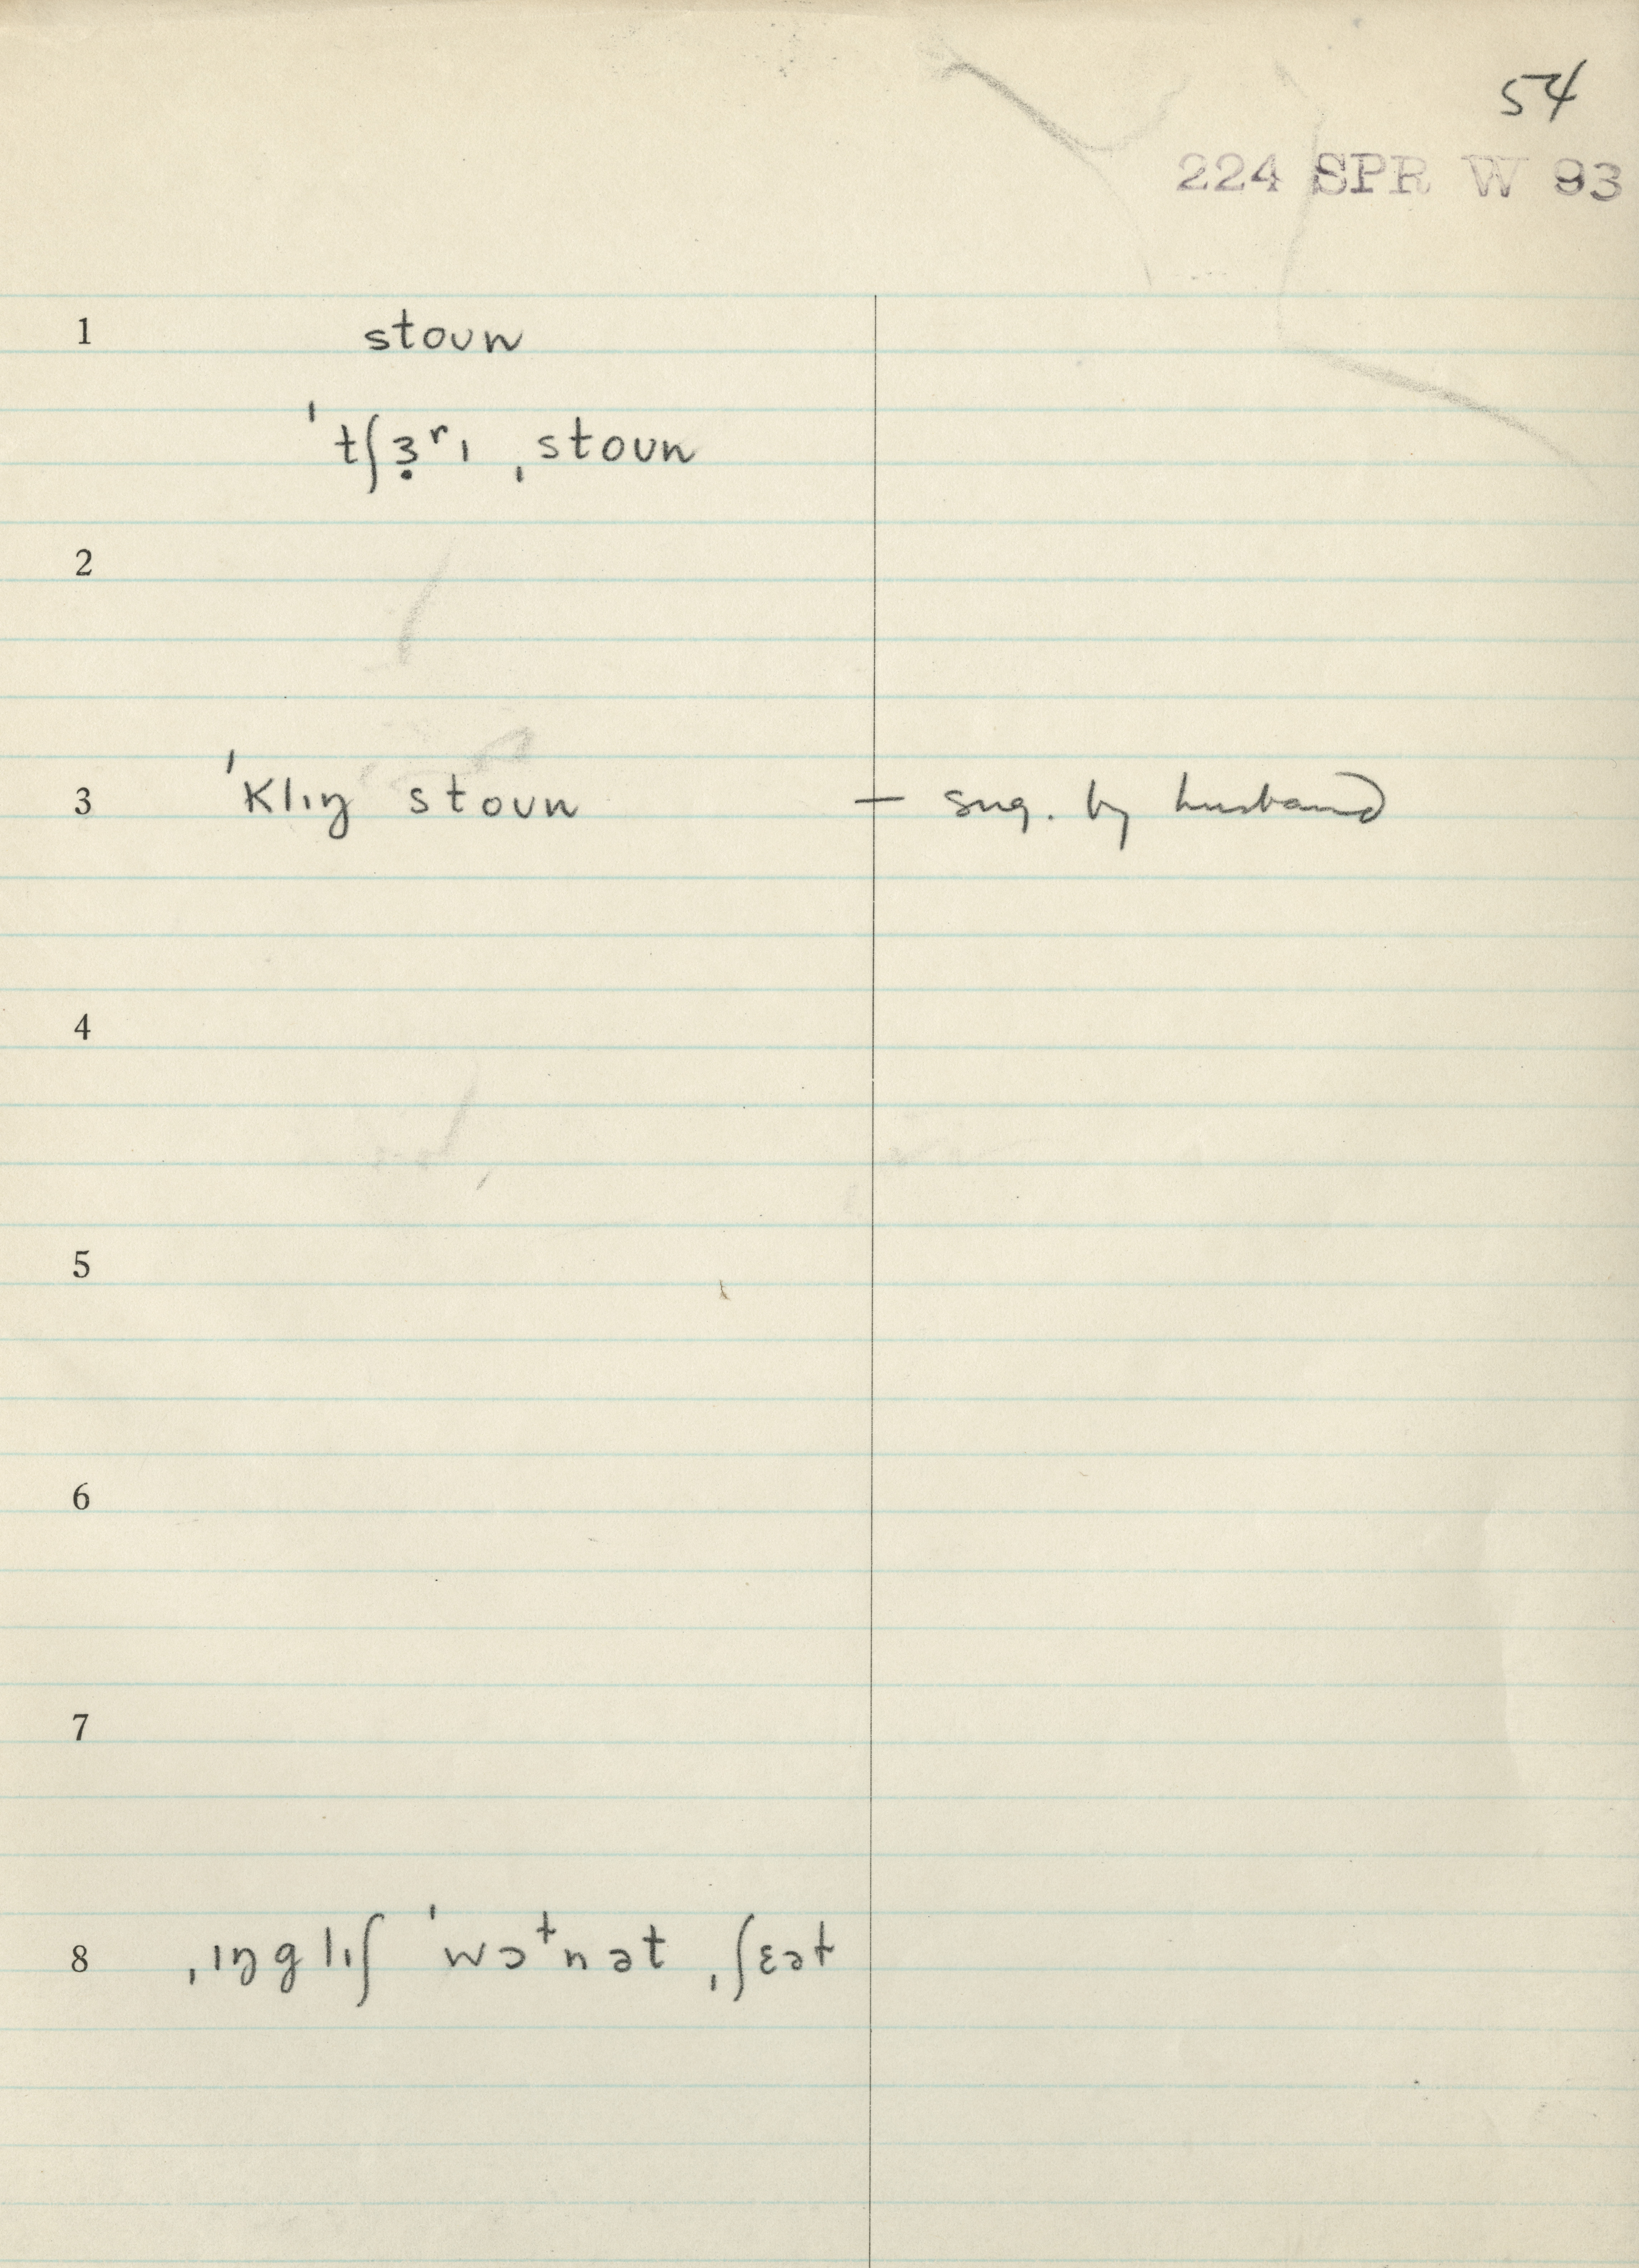 54
224 SPR W 93
1 stoʊn
ˈtʃɜ̣ʳɪ ˌstoʊn
2
3 ˈklɪŋ stoʊn — sug. by husband
4
5
6
7
8 ˌɪŋglɪʃ ˈwɔᵗnət ˌʃɛət